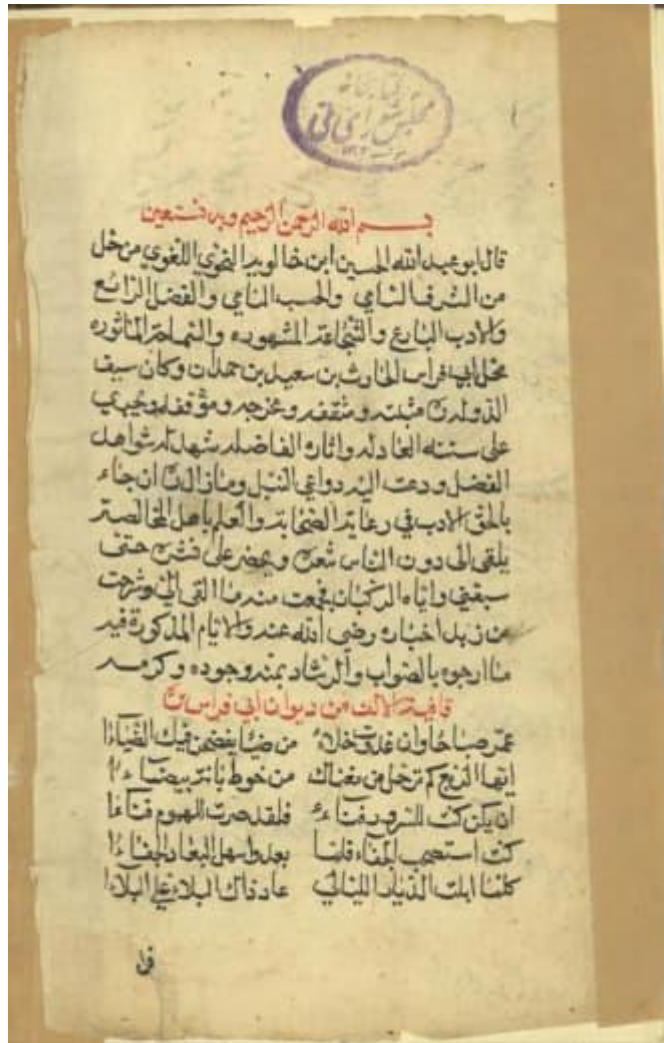 كتابخانه
مجلس شورای ملی
بسم الله الرحمن الرحيم وبه نستعين
قال ابو عبد الله الحسين ابن خالويه النحوي اللغوي من حل
من الشرف السامي والحسب النامي والفضل الرائع
والادب البارع والشجاعة المشهوره والسماحة الماثوره
محل ابي فراس الحارث بن سعيد بن حمدان وكان سيف
الدوله مثبته ومثقفه ومخرجه وموقفه
على سننه العادله واثاره الفاضله
الفضل ودعت اليه دواعي النبل وما زال
بالحق الادب في رعاية الصحابة والعلم باهل المخالصة
يلقى الى دون الناس شعره ويحضر على نشره حتى
سبقني واياه الركبان فجمعت منه ما القى الي وشرحت
من اخباره رضي الله عنه والايام المذكورة فيه
ما ارجوه بالصواب والرشاد بمنه وجوده وكرمه
قافية الالف من ديوان ابي فراس
عم صباحا وان غدوت خلاء من فيك الضياءا
ايها الربع كم ترحل من مغناك من خوط بانة بيضاءا
ان يكن كنت للسرور فناء فلقد صرت للهموم فناءا
كنت استصعب الجفاء فلما بعدوا سهل البعاد الجفاءا
كلما ابلت الديار الليالي عاد ذاك البلاء علي البلاءا